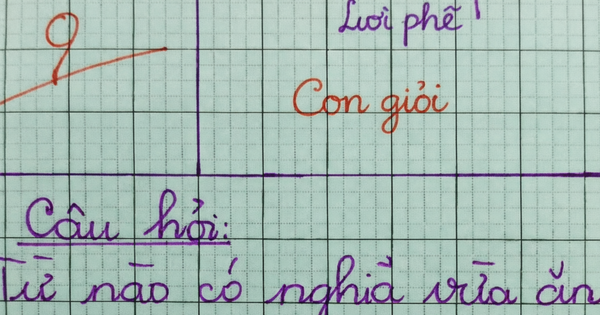 9
Lời phê
Con giỏi
Câu hỏi:
Từ nào có nghĩa vừa ăn